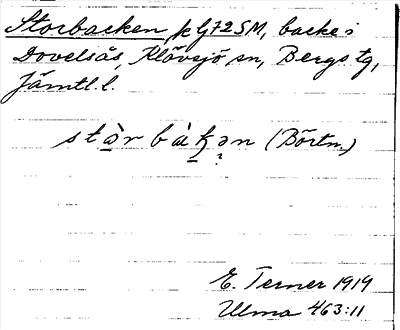 Storbacken på 72 SM, backe i
Dovelsås, Klövsjö sn, Bergs tg,
Jämtl. l.
stɑ̀r bàkən (Börtn.)
E. Terner 1919
Ulma 463:11